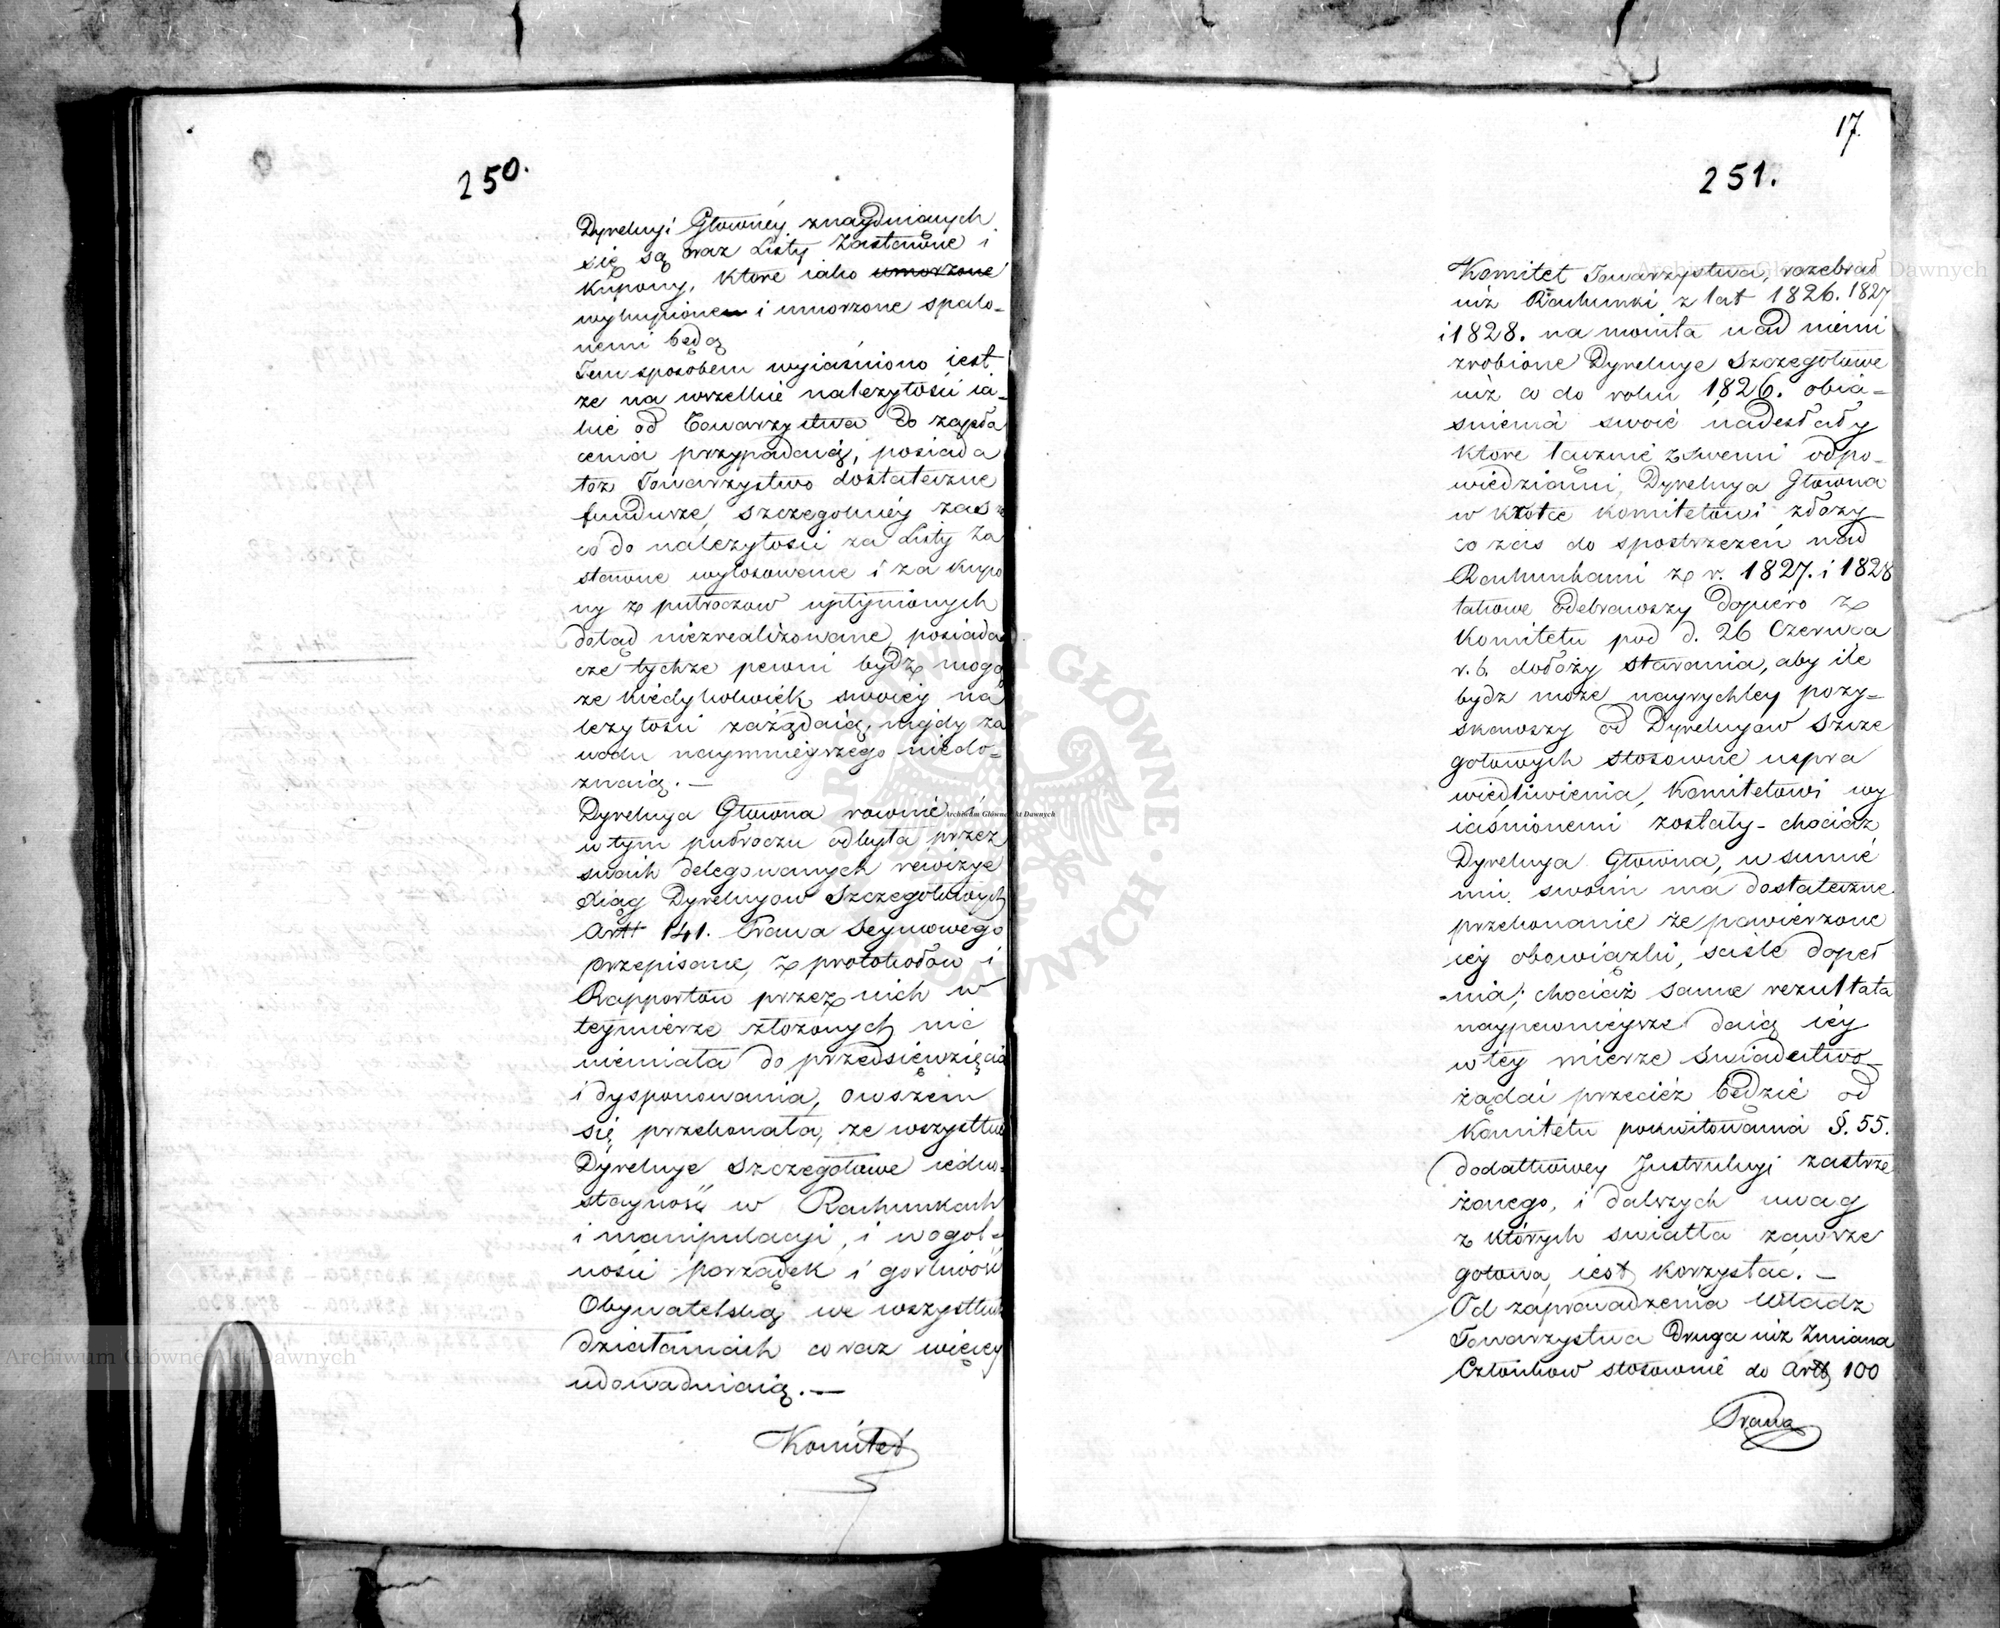 250.
Dyrekcyi Głownéy znayduiących
się są oraz Listy Zastawne i
Kupony, które iako umorzone
wykupione i umorzone spalo-
nemi będą
Tem sposobem wyiaśniono iest
że na wszelkie należytości ia-
kie od Towarzystwa do zapła
cenia przypadaią, posiada
toż Towarzystwo dostateczne
fundusze, szczegolniéy zaś
co do należytości za Listy Za
stawne wylosowane i za kupo
ny z półroczow upłynionych
dotąd niezrealizowane, posiada
cze tychże pewni bydź mogą
że kiedykolwiek swoiéy na
leżytości zażądaią, nigdy za
wodu naymnieyszego niedo-
znaią. —
Dyrekcya Głowna rownie i
w tym półroczu odbyła przez
swoich delegowanych rewizye
Xiąg Dyrekcyow Szczegołowych
Artt 141. Prawa Seymowego
przepisane, z protokołow i
Rapportów przez nich w
téymierze złożonych nic
niemiała do przedsięwzięcia
i dysponowania, owszem
się przekonała, że wszystkie
Dyrekcye Szczegołowe iedno-
stayność w Rachunkach
i manipulacyi, i wogol-
ności porządek i gorliwość
Obywatelską we wszystkich
działaniach coraz więcéy
udowadniaią. —
Komitet
17.
251.
Komitet Towarzystwa, rozebrał
iuż Rachunki z lat 1826. 1827
i 1828. na monita nad niemi
zrobione Dyrekcye Szczegołowe
iuż co do roku 1826. obia-
snienia swoie nadesłały
ktore łącznie z swemi odpo-
wiedziami, Dyrekcya Głowna
w krotce Komitetowi złoży
co zaś do spostrzeżeń nad
Rachunkami z r. 1827. i 1828
takowe odebrawszy dopiero z
Komitetu pod d. 26 Czerwca
r. b. dołoży starania, aby ile
bydź może nayrychley pozy-
skawszy od Dyrekcyow Szcze
gołowych stosowne uspra
wiedliwienia, Komitetowi wy
iaśnionemi zostały - chociaż
Dyrekcya Głowna, w sumie
niu swoim ma dostateczne
przekonanie że powierzone
iéy obowiązki, ściśle dopeł
-nia; chociaż same rezultata
naypewnieysze daią iéy
w téy mierze świadectwo
żądać przecież będzie od
Komitetu pokwitowania §. 55.
dodatkowey Instrukcyi zastrze
żonego, i dalszych uwag
z których światła zawsze
gotowa iest korzystać. —
Od zaprowadzenia Władz
Towarzystwa Druga iuż Zmiana
Członków stosownie do Artt 100
Prawa
Archiwum Główne Akt Dawnych
Archiwum Główne Akt Dawnych
Archiwum Główne Akt Dawnych
ARCHIWUM GŁÓWNE AKT DAWNYCH